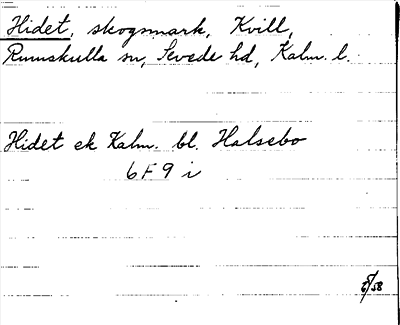 Hidet, skogsmark, Kvill,
Rumskulla sn, Sevede hd, Kalm. l.
Hidet ek Kalm. bl. Halsebo
6F9 i